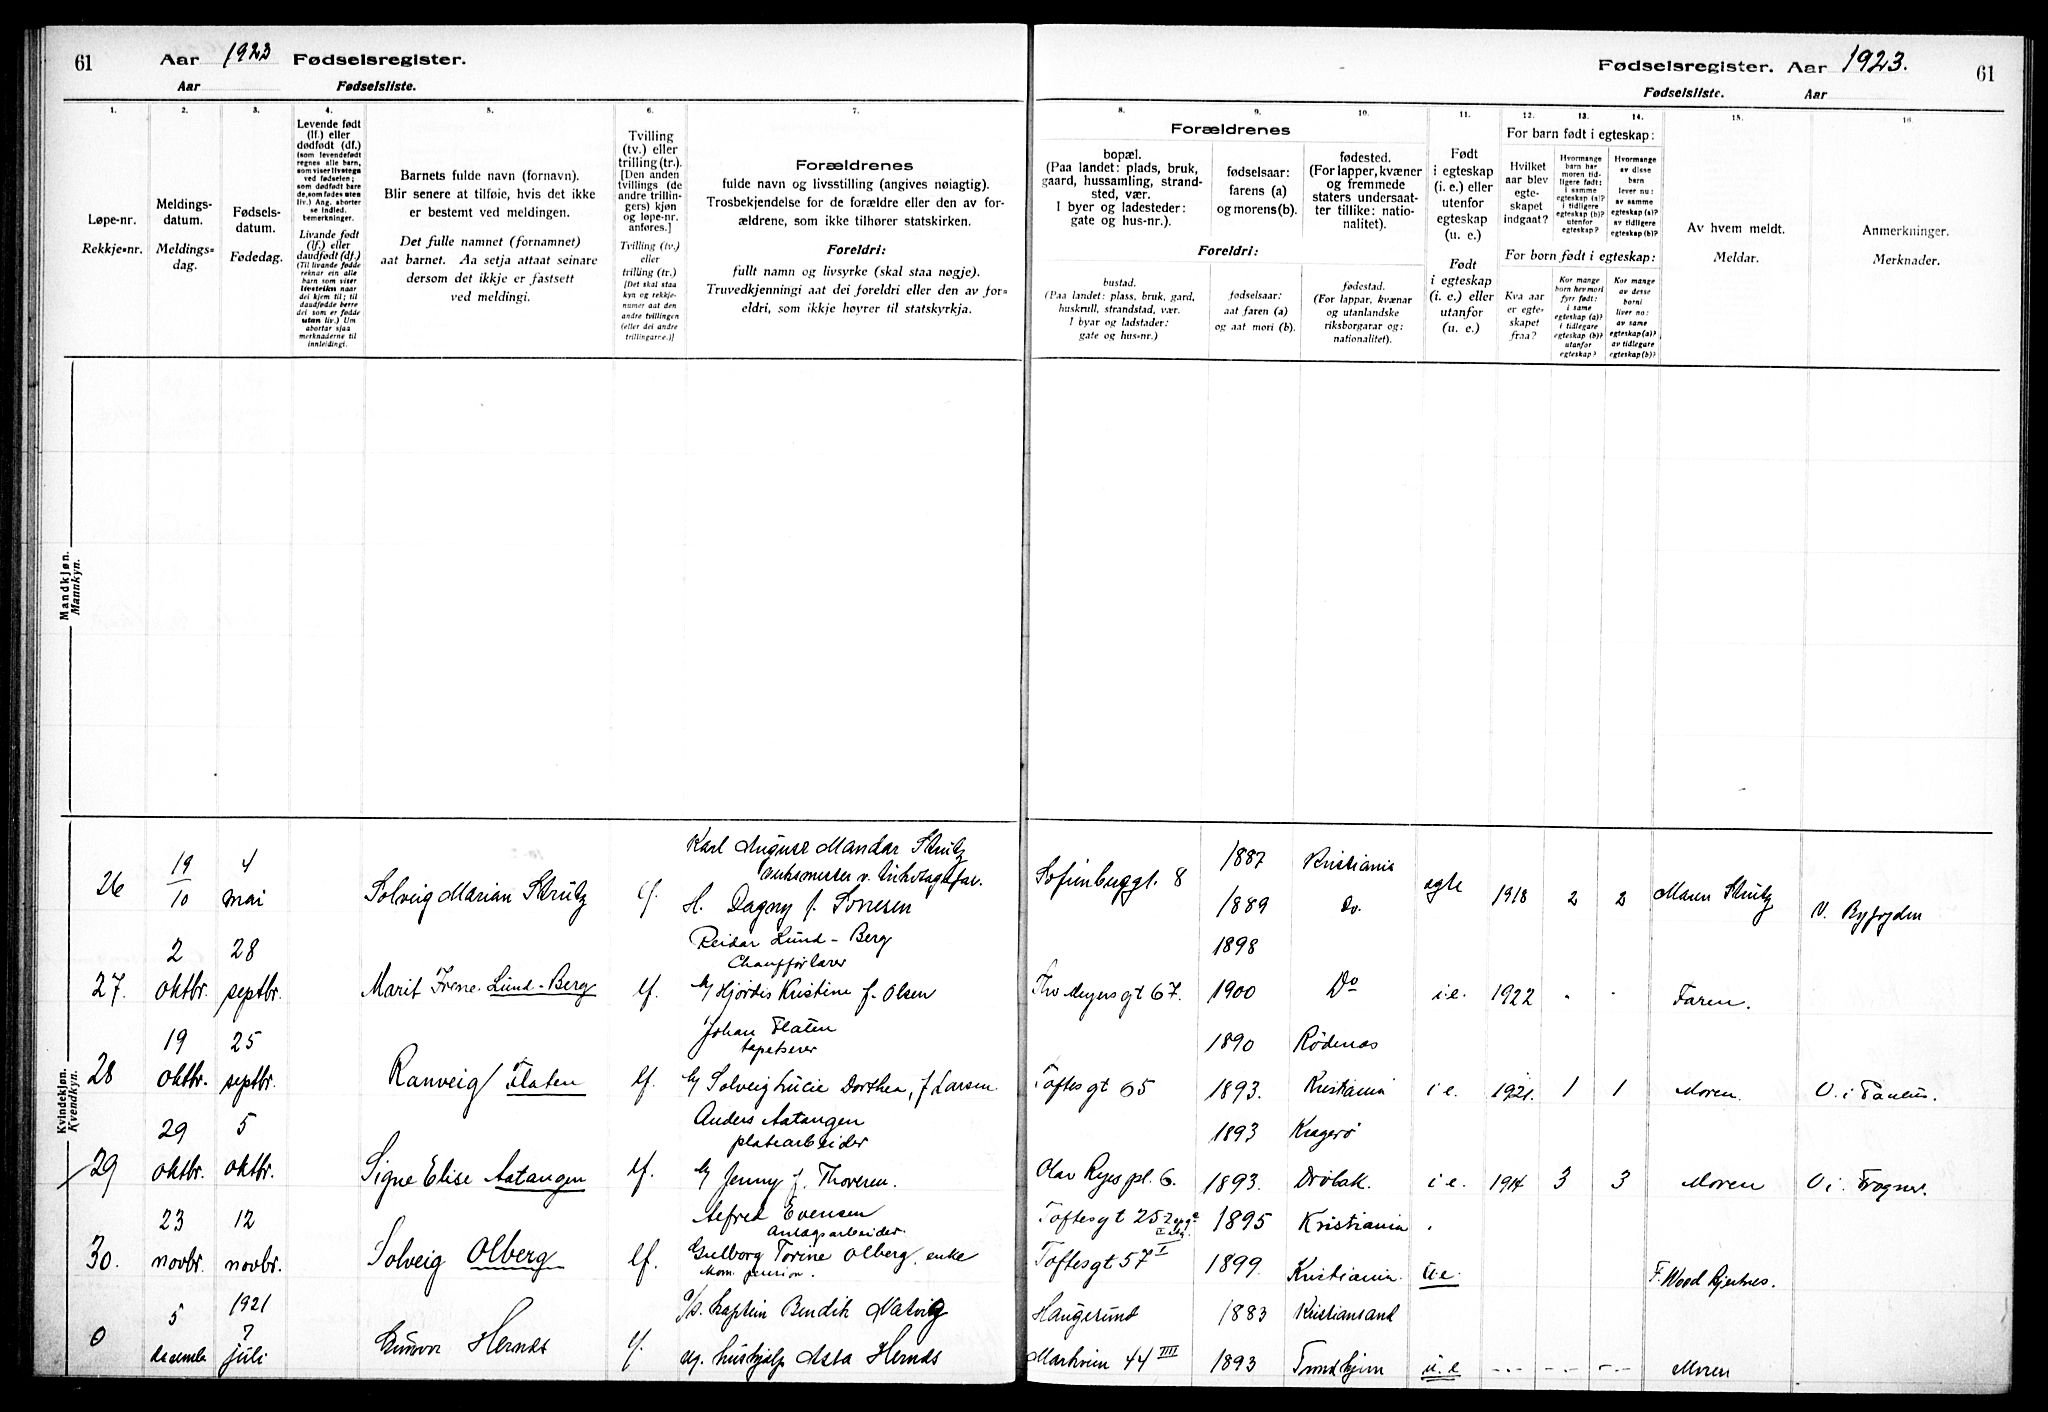 61 Aar 1923 Fødselsregister.
Aar Fødselsliste.
Fødselsregister. Aar 1923. 61
Fødselsliste. Aar
1. 2. 3. 4. 5. 6. 7.
Løpe-nr.
Rekkje-nr.
Meldings-
datum.
Meldings-
dag.
Fødsels-
datum.
Fødedag.
Levende født
(lf.) eller
dødfødt (df.)
(som levendefødt
regnes alle barn,
som viser livstegn
ved fødselen;
som dødfødt bare
de, som fødes uten
liv.) Ang. aborter
se indled.
bemerkninger.
Livande født
(lf.) eller
daudfødt (df.)
(Til livande fødde
reknar ein alle
born som viser
livsteikn naar
dei kjem til; til
daudfødde berre
dei som er fødde
utan liv.) Um
abortar sjaa
merknaderne til
innleidingi.
Barnets fulde navn (fornavn).
Blir senere at tilføie, hvis det ikke
er bestemt ved meldingen.
Det fulle namnet (fornamnet)
aat barnet. Aa setja attaat seinare
dersom det ikkje er fastsett
ved meldingi.
Tvilling
(tv.) eller
trilling (tr.).
[Den anden
tvillings (de
andre trillin-
gers) kjøn
og løpe-nr.
anføres.]
Tvilling (tv.)
eller
trilling (tr.)
[Det skal staa
kyn og rekkje-
numer aat den
andre tvillingen
(eller dei andre
trillingarne.)]
Forældrenes
fulde navn og livsstilling (angives nøiagtig).
Trosbekjendelse for de forældre eller den av for-
ældrene, som ikke tilhører statskirken.
Foreldri:
fullt namn og livsyrke (skal staa nøgje).
Truvedkjenningi aat dei foreldri eller den av for-
eldri, som ikkje høyrer til statskyrkja.
8. 9. 10. 11. 12. 13. 14. 15. 16.
Forældrenes
bopæl.
(Paa landet: plads, bruk,
gaard, hussamling, strand-
sted, vær.
I byer og ladesteder:
gate og hus-nr.).
fødselsaar:
farens (a)
og morens (b).
fødested.
(For lapper, kvæner
og fremmede
staters undersaat-
ter tillike: natio-
nalitet).
Foreldri:
bustad.
(Paa landet: plass, bruk, gard,
huskrull, strandstad, vær.
I byar og ladstader:
gate og hus-nr.)
fødselsaar:
aat faren (a)
og aat mori (b).
fødestad.
(For lappar, kvænar
og utanlandske
riksborgarar og:
nationalitet).
Født
i egteskap
(i. e.) eller
utenfor
egteskap
(u. e.)
Født
i egteskap
(i. e.) eller
utanfor
(u. e.)
For barn født i egteskap:
Hvilket
aar blev
egte-
skapet
indgaat?
Hvormange
barn har
moren tid-
ligere født:
i samme
egteskap (a)?
i tidligere
egteskap (b)?
utenfor
egteskap?
Hvormange
av disse
barn
lever nu:
av samme
egteskap (a)?
av tidligere
egteskap (b)?
For born født i egteskap:
Kva aar
er egte-
skapet
fraa?
Kor mange
born hev mori
fyrr født:
i same
egteskap (a)?
i tidlegare
egteskap (b)?
utanfor
egteskap?
Kor mange
av desse
borni
liver no:
av same
egteskap (a)?
av tidlegare
egteskap (b)?
Av hvem meldt.
Meldar.
Anmerkninger.
Merknader.
Mandkjøn.
Mannkyn.
Kvindekjøn.
Kvendkyn.
26 19/10 4 mai Solveig Marian Strutz lf. Karl August Mandar Strutz
H. Dagny f.
Sofienberggt. 8 1887 Kristiania
1889 Do. egte 1918 2 2 Maren Strutz V. Byfogden
27. 2 oktbr. 28 septbr. Marit Irene Lund-Berg lf. Reidar Lund-Berg
Chauffør
Hjørdis Kristine f. Olsen
1898
Thv Meyersgt 67. 1900 Do i.e. 1922 Faren.
28 19 oktbr. 25 septbr. Ranveig Flaten lf. Johan Flaten
tapetserer
Solveig Lucie Dorthea, f Larsen
1890 Rödenes
Toftesgt 65 1893. Kristiania i e. 1921. 1 1 Moren. V. i Paulus.
29 29 oktbr. 5 oktbr. Signe Elise Aatangen lf. Anders Aatangen
platearbeider
Jenny f. Thoresen.
1893 Kragerø
Olav Ryes pl. 6. 1893. Drøbak. i e. 1914 3 3 Moren V i. Frogner.
30. 23 novbr. 12 novbr. Solveig Olberg lf. Alfred Evensen
Anlægsarbeider.
Gulborg Torine Olberg, enke
Kom. pension.
Toftesgt 25 1895 Kristiania
Toftesgt 57 I 1899. Kristiania. u.e. F. Wood
0 5 decembr 1921 7 juli Gunvor Hernes lf. kaptein Bendik Natvig
ug. hushjælp Asta Hernes
Haugesund 1883 Kristiansand
Markveien 44 IIII 1893 Trondhjem u.e Moren